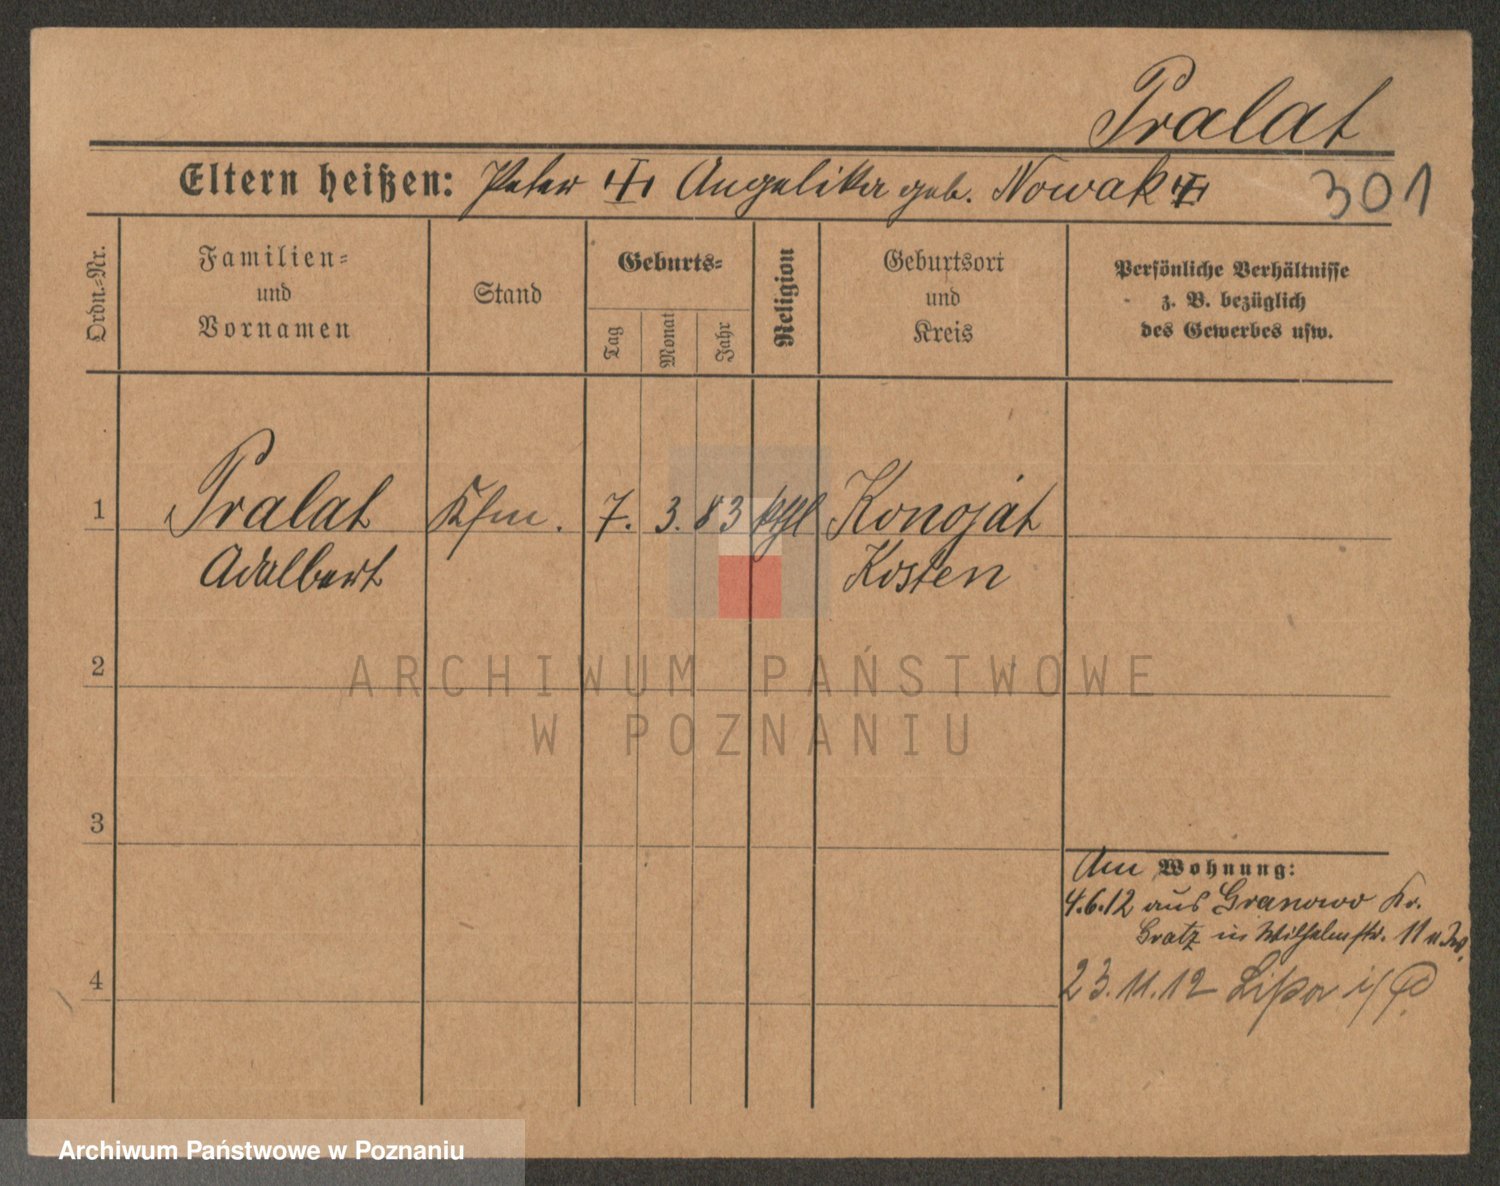 Pralat
Eltern heißen: Peter Angelika geb. Nowak
301
Ordn.-Nr.
Familien-
und
Vornamen
Stand
Geburts-
Tag
Monat
Jahr
Religion
Geburtsort
und
Kreis
Persönliche Verhältnisse
z. B. bezüglich
des Gewerbes usw.
1 Pralat Kfm. 7. 3. 83 kthl Konojad
Adalbert Kosten
2
ARCHIWUM PAŃSTWOWE
W POZNANIU
3
Am Wohnung:
4.6.12 aus Granowo Kr.
Gratz in Wilhelmstr. 11
4
23.11.12 Lissa i/P.
Archiwum Państwowe w Poznaniu